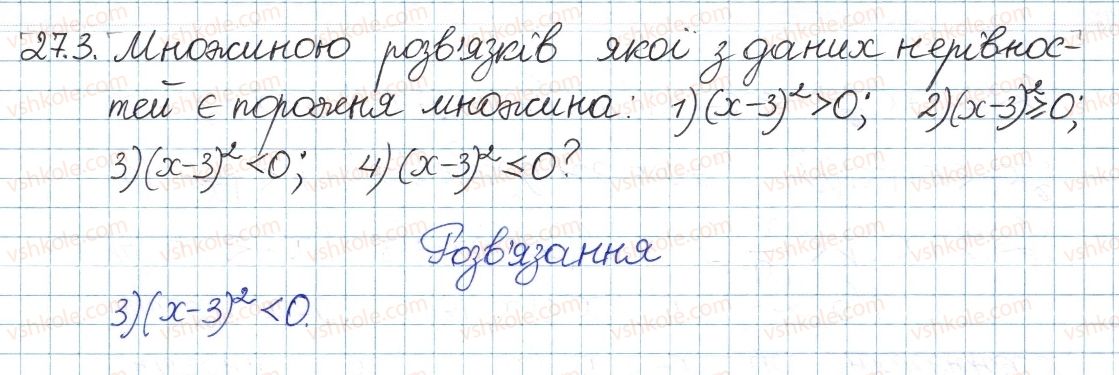 27.3. Множиною розв'язків якої з даних нерівнос-
тей є порожня множина: 1) (x-3)²>0; 2) (x-3)²≥0;
3) (x-3)²<0; 4) (x-3)²≤0?
Розв'язання
3) (x-3)²<0.